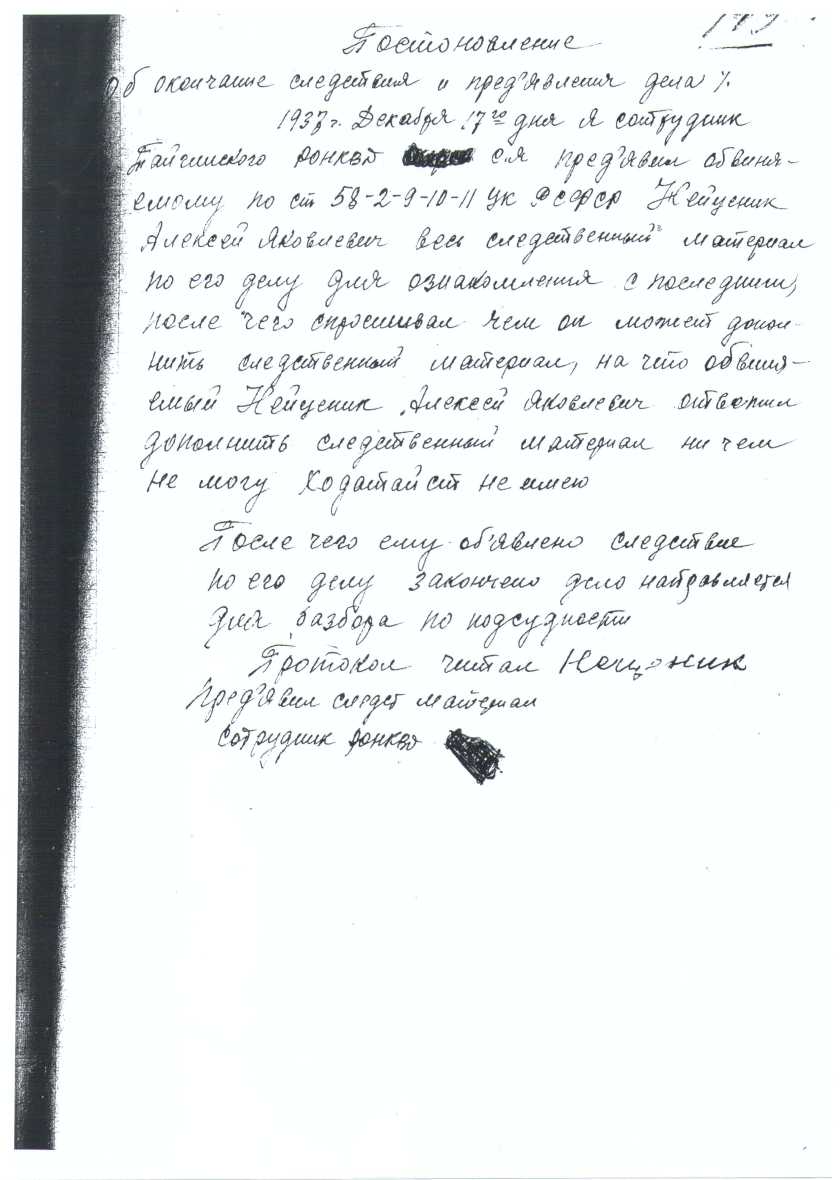 Постоновление
Об окончание следствия и пред'явления дела
1937 г. Декабря 17го дня я сотрудник
Тайгинского РОНКВД с.я пред'явил обвиня-
емому по ст 58-2-9-10-11 УК РСФСР Нейценик
Алексей Яковлевич весь следственный материал
по его делу для ознакомления с последним,
после чего спрошивал чем он может допол-
нить следственный материал, на что обвиня-
емый Нейценик Алексей Яковлевич ответил
дополнить следственный материал ни чем
не могу Ходатайст не имею
После чего ему об'явлено следствие
по его делу закончено дело направляется
для разбора по подсудности
Протокол читал
Пред'явил следст материал
Сотрудник РОНКВД